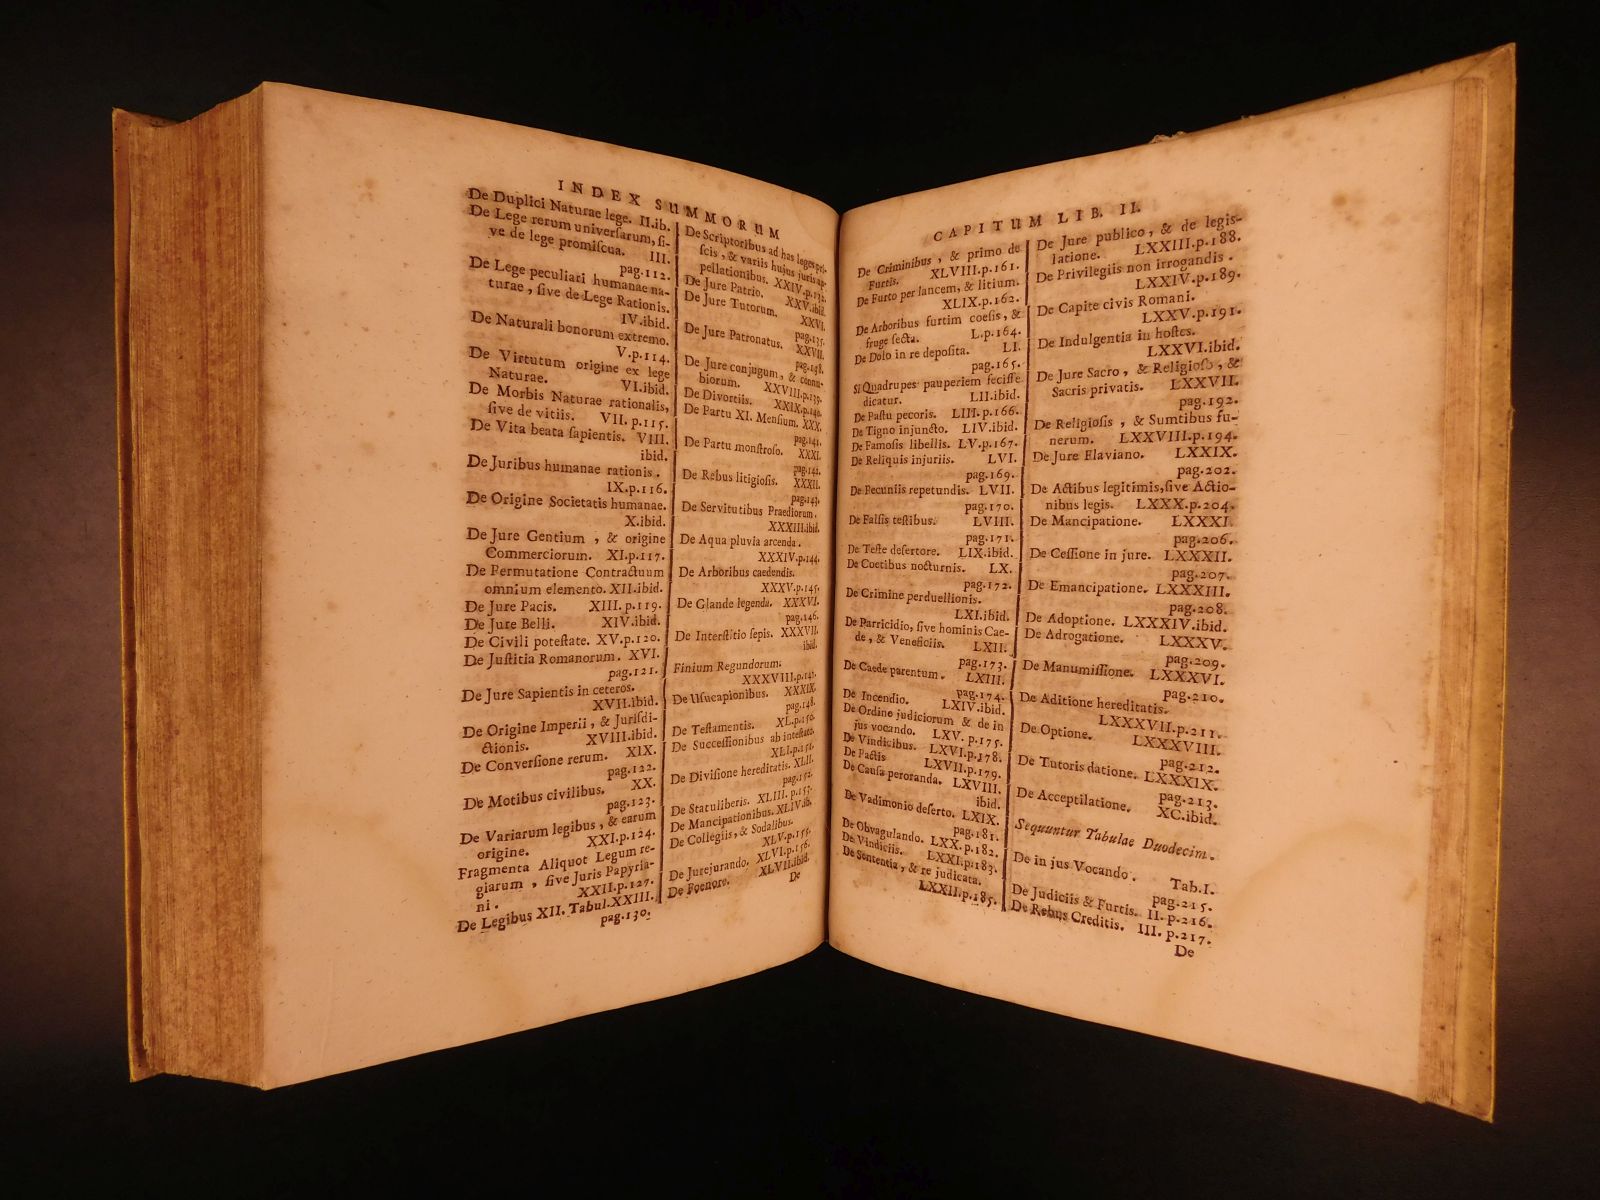 INDEX SUMMORUM
De Duplici Naturae lege. II.ib.
De Lege rerum universarum, si-
ve de lege promissa. III.
pag.112.
De Lege peculiari humanae na-
turae, sive de Lege Rationis.
IV.ibid.
De Naturali bonorum extremo.
V.p.114.
De Virtutum origine ex lege
Naturae. VI.ibid.
De Morbis Naturae rationalis,
sive de vitiis. VII. p.115.
De Vita beata sapientis. VIII.
ibid.
De Juribus humanae rationis.
IX.p.116.
De Origine Societatis humanae.
X.ibid.
De Jure Gentium, & origine
Commerciorum. XI.p.117.
De Permutatione Contractuum
omnium elemento. XII.ibid.
De Jure Pacis. XIII.p.119.
De Jure Belli. XIV.ibid.
De Civili potestate. XV.p.120.
De Justitia Romanorum. XVI.
pag.121.
De Jure Sapientis in ceteros.
XVII.ibid.
De Origine Imperii, & Jurisdi-
ctionis. XVIII.ibid.
De Conversione rerum. XIX.
pag.122.
De Motibus civilibus. XX.
pag.123.
De Variarum legibus, & earum
origine. XXI.p.124.
Fragmenta Aliquot Legum re-
giarum, sive Juris Papyria-
ni. XXII.p.127.
De Legibus XII. Tabul.XXIII.
pag.130.
De Scriptoribus ad has leges
scis, & variis hujus juris ap-
pellationibus. XXIV.p.132.
De Jure Patrio. XXV.ibid.
De Jure Tutorum. XXVI.
pag.135.
De Jure Patronatus. XXVII.
pag.138.
De Jure conjugum, & connu-
biorum. XXVIII.p.139.
De Divortiis. XXIX.p.140.
De Partu XI. Mensium. XXX.
pag.141.
De Partu monstroso. XXXI.
pag.142.
De Rebus litigiosis. XXXII.
pag.143.
De Servitutibus Praediorum.
XXXIII.ibid.
De Aqua pluvia arcenda.
XXXIV.p.144.
De Arboribus caedendis.
XXXV.p.145.
De Glande legenda. XXXVI.
pag.146.
De Interstitio sepis. XXXVII.
ibid.
Finium Regundorum.
XXXVIII.p.147.
De Usucapionibus. XXXIX.
pag.148.
De Testamentis. XL.p.150.
De Successionibus ab intestato.
XLI.p.151.
De Divisione hereditatis. XLII.
pag.152.
De Statuliberis. XLIII. p.153.
De Mancipationibus. XLIV.ib.
De Collegiis, & Sodalibus.
XLV.p.155.
De Jurejurando. XLVI.p.156.
De Foenore. XLVII.ibid.
De
CAPITUM LIB. II.
De Criminibus, & primo de
Furtis. XLVIII.p.161.
De Furto per lancem, & litium.
XLIX.p.162.
De Arboribus furtim coesis, &
fruge secta. L.p.164.
De Dolo in re deposita. LI.
pag.165.
Si Quadrupes pauperiem fecisse
dicatur. LII.ibid.
De Pastu pecoris. LIII.p.166.
De Tigno injuncto. LIV.ibid.
De Famosis libellis. LV.p.167.
De Reliquis injuriis. LVI.
pag.169.
De Pecuniis repetundis. LVII.
pag.170.
De Falsis testibus. LVIII.
pag.171.
De Teste desertore. LIX.ibid.
De Coetibus nocturnis. LX.
pag.172.
De Crimine perduellionis.
LXI.ibid.
De Parricidio, sive hominis Cae-
de, & Veneficiis. LXII.
pag.173.
De Caede parentum. LXIII.
pag.174.
De Incendio. LXIV.ibid.
De Ordine judiciorum & de in
jus vocando. LXV. p.175.
De Vindicibus. LXVI.p.178.
De Pactis LXVII.p.179.
De Causa peroranda. LXVIII.
ibid.
De Vadimonio deserto. LXIX.
pag.181.
De Obvagulando. LXX. p.182.
De Vindiciis. LXXI.p.183.
De Sententia, & re judicata.
LXXII.p.185.
De Jure publico, & de legis-
latione. LXXIII.p.188.
De Privilegiis non irrogandis.
LXXIV.p.189.
De Capite civis Romani.
LXXV.p.191.
De Indulgentia in hostes.
LXXVI.ibid.
De Jure Sacro, & Religioso, &
Sacris privatis. LXXVII.
pag.192.
De Religiosis, & Sumtibus fu-
nerum. LXXVIII.p.194.
De Jure Flaviano. LXXIX.
pag.202.
De Actibus legitimis, sive Actio-
nibus legis. LXXX.p.204.
De Mancipatione. LXXXI.
pag.206.
De Cessione in jure. LXXXII.
pag.207.
De Emancipatione. LXXXIII.
pag.208.
De Adoptione. LXXXIV.ibid.
De Adrogatione. LXXXV.
pag.209.
De Manumissione. LXXXVI.
pag.210.
De Aditione hereditatis.
LXXXVII.p.211.
De Optione. LXXXVIII.
pag.212.
De Tutoris datione. LXXXIX.
pag.213.
De Acceptilatione. XC.ibid.
Sequuntur Tabulae Duodecim.
De in jus Vocando. Tab.I.
pag.215.
De Judiciis & Furtis. II. p.216.
De Rebus Creditis. III. p.217.
De